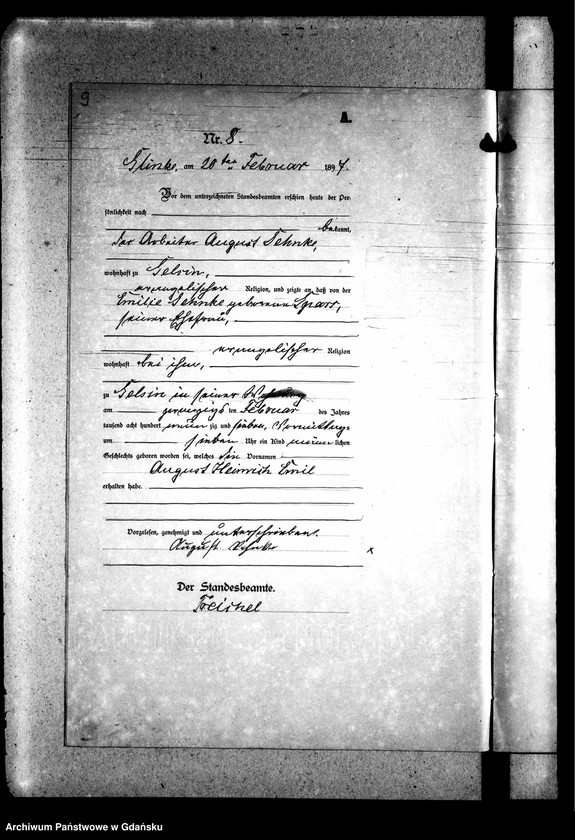 9
A
Nr. 8.
Glinke, am 20ten Februar 1897.
Vor dem unterzeichneten Standesbeamten erschien heute der Per-
sönlichkeit nach
bekannt,
der Arbeiter August
wohnhaft zu Gelsin,
evangelischer Religion, und zeigte an, daß von der
Emilie geborenen
seiner Ehefrau,
evangelischer Religion
wohnhaft bei ihm,
zu Gelsin in seiner Wohnung
am zwanzigsten Februar des Jahres
tausend acht hundert neunzig und sieben, Vormittags
um sieben Uhr ein Kind männlichen
Geschlechts geboren worden sei, welches die Vornamen
August Heinrich Emil
erhalten habe.
Vorgelesen, genehmigt und unterschrieben.
August
x
Der Standesbeamte.
Treichel
Archiwum Państwowe w Gdańsku